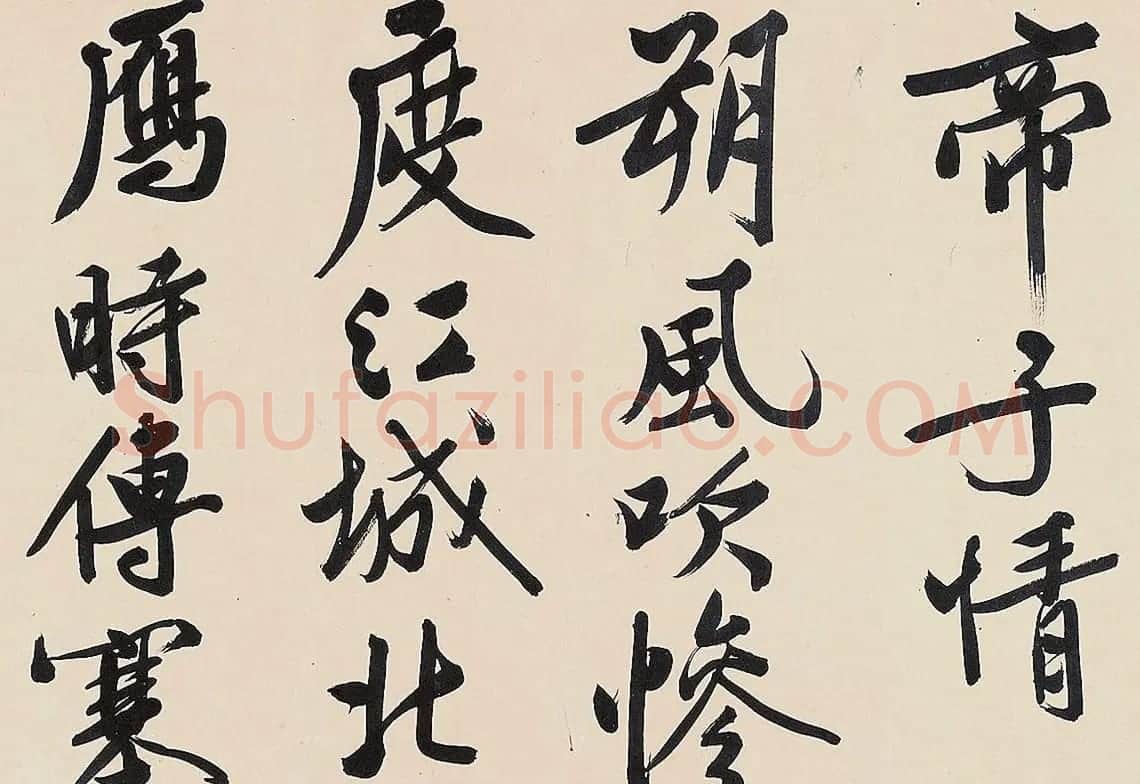 帝子情
朔風吹慘
度江城北
鴈時傳塞
Shufaziliao.COM